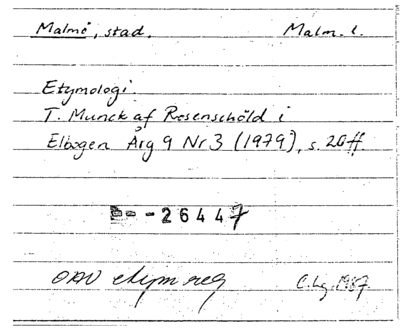 Malmö, stad. Malm. l.
Etymologi.
T. Munck af Rosenschöld i
Elbogen Årg 9 Nr 3 (1979), s. 26 ff.
-26447
OAU etym reg C. Lg. 1987.